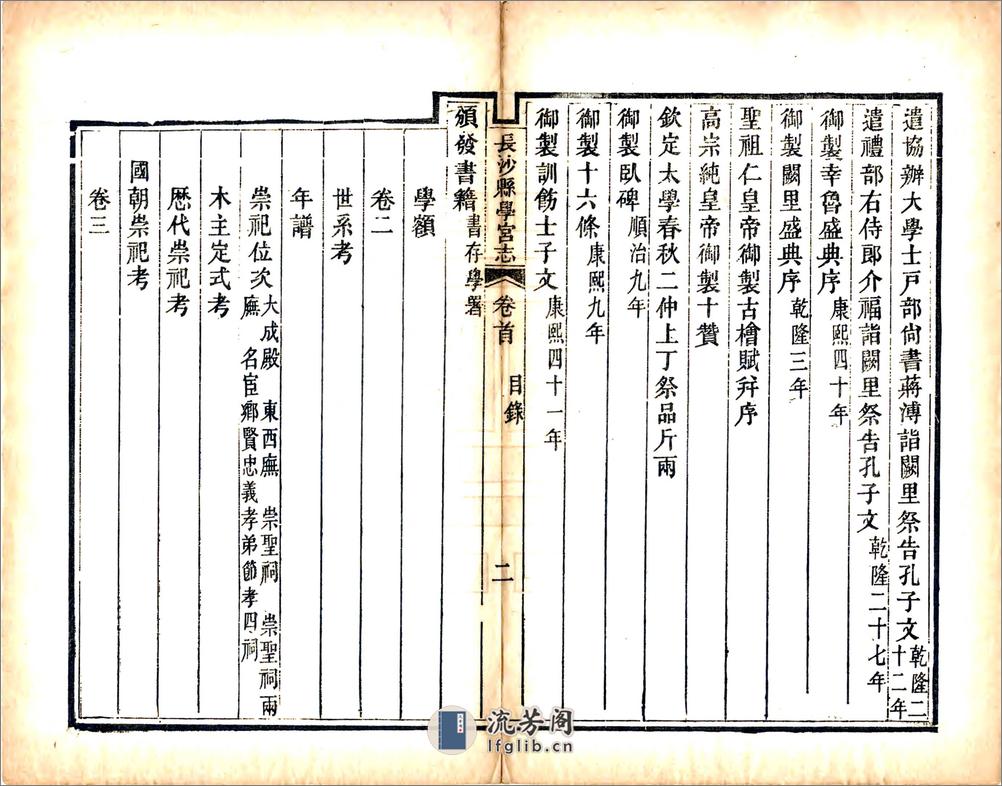 遣協辦大學士戸部尙書蔣溥詣闕里祭告孔子文乾隆二十二年
遣禮部右侍郎介福詣闕里祭告孔子文乾隆二十七年
御製幸魯盛典序康熙四十年
御製闕里盛典序乾隆三年
聖祖仁皇帝御製古檜賦幷序
高宗純皇帝御製十贊
欽定太學春秋二仲上丁祭品斤兩
御製臥碑順治九年
御製十六條康熙九年
御製訓飭士子文康熙四十一年
頒發書籍書存學署
長沙縣學宮志 卷首 目錄 二
學額
卷二
世系考
年譜
崇祀位次大成殿 東西廡 崇聖祠 崇聖祠兩廡 名宦鄉賢忠義孝弟節孝四祠
木主定式考
歷代崇祀考
國朝崇祀考
卷三
流芳阁
lfglib.cn